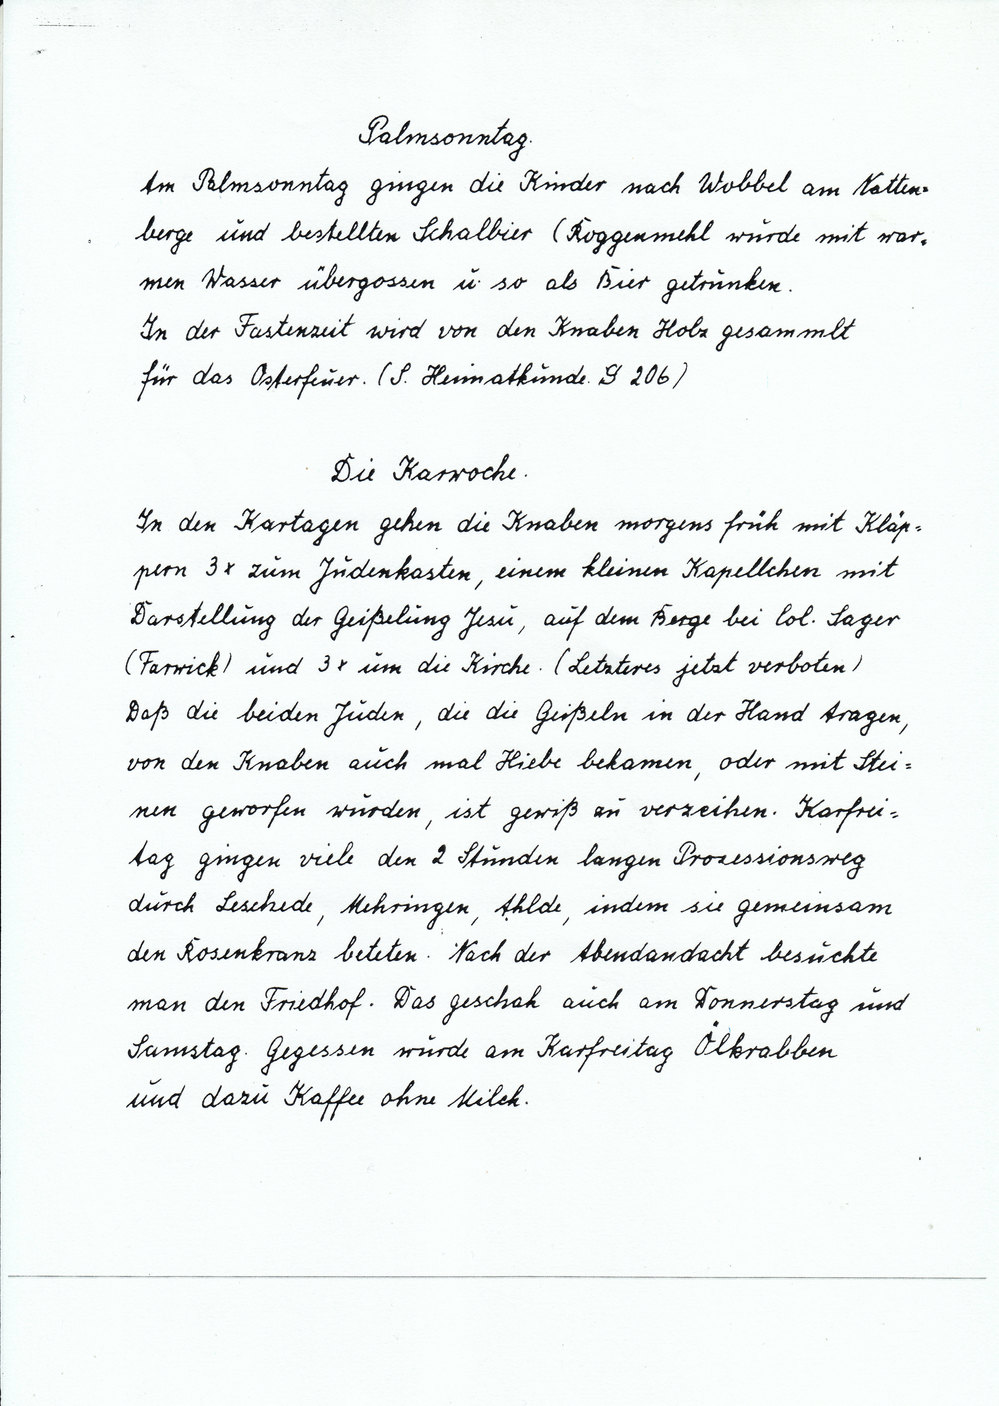 Palmsonntag.
Am Palmsonntag gingen die Kinder nach Wobbel am Natten=
berge und bestellten Schalbier (Roggenmehl wurde mit war=
men Wasser übergossen u. so als Bier getrunken.
In der Fastenzeit wird von den Knaben Holz gesammlt
für das Osterfeuer. (S. Heimatkunde. S 206)
Die Karwoche.
In den Kartagen gehen die Knaben morgens früh mit Kläp=
pern 3x zum Judenkasten, einem kleinen Kapellchen mit
Darstellung der Geißelung Jesu, auf dem Berge bei Col. Sager
(Farwick) und 3x um die Kirche. (Letzteres jetzt verboten)
Daß die beiden Juden, die die Geißeln in der Hand tragen,
von den Knaben auch mal Hiebe bekamen, oder mit Stei=
nen geworfen wurden, ist gewiß zu verzeihen. Karfrei=
tag gingen viele den 2 Stunden langen Prozessionsweg
durch Leschede, Mehringen, Ahlde, indem sie gemeinsam
den Rosenkranz beteten. Nach der Abendandacht besuchte
man den Friedhof. Das geschah auch am Donnerstag und
Samstag. Gegessen wurde am Karfreitag Ölkrabben
und dazu Kaffee ohne Milch.